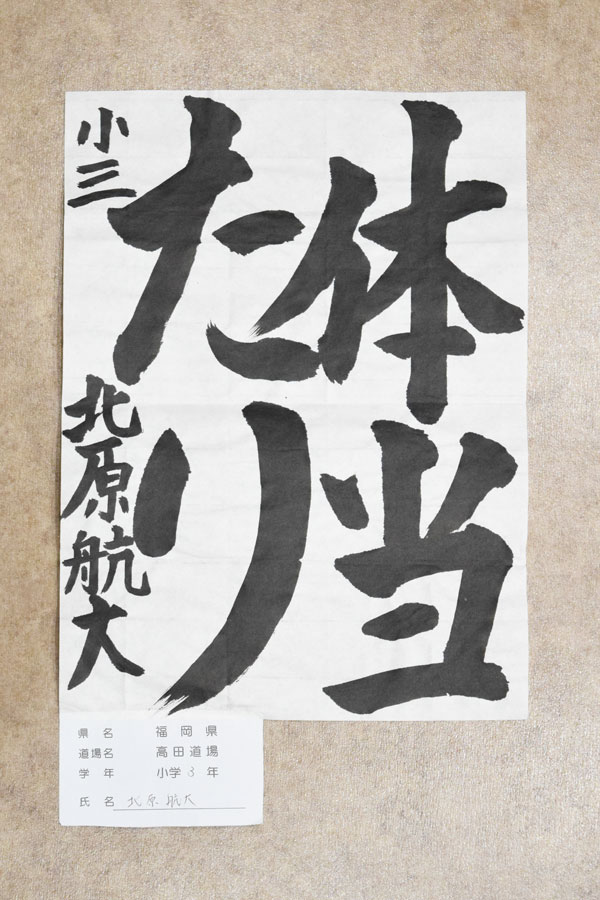 体当
たり
小三
北原航大
県名 福岡県
道場名 高田道場
学年 小学3年
氏名 北原航大